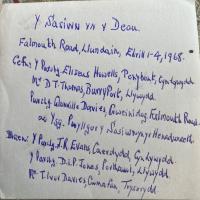 Y Sasiwn yn y Deau.
Falmouth Road, Llundain, Ebrill 1-4, 1968.
Cefn: Y Parchg. Elizeus Howells, Penybont, Cynlywydd
Mr D.T. Thomas, Burry Port, Llywydd.
Parchg. Glanville Davies, Gweinidog, Falmouth Road.
ac Ysg. Penllygor y Sasiwn yn yr Henaduriaeth.
Blaen: Y Parchg. J.R. Evans, Caerdydd, Cynlywydd.
Y Parchg. D.S.P. Jones, Porthcawl, Llywydd.
Mr. Ifor Davies, Cwmafan, Trysorydd.